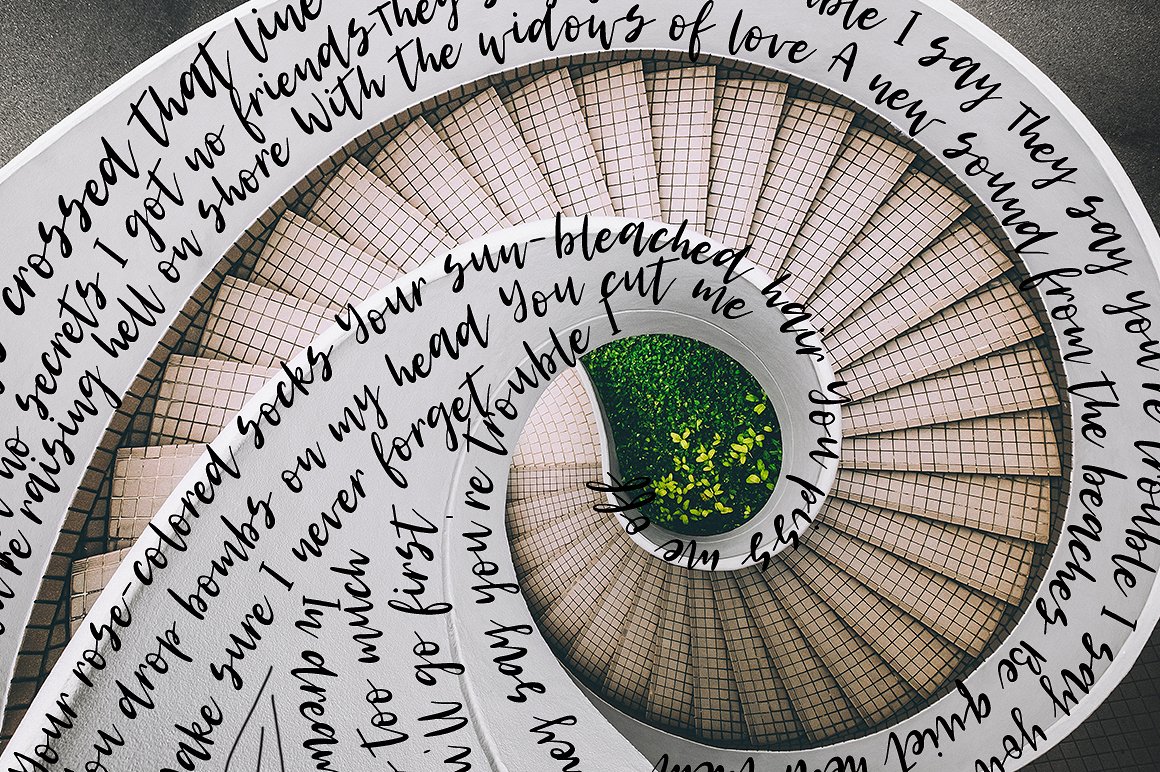 crossed that line
no secrets I got no friends They
re raising hell on shore With the widows of love A new sound from the beaches Be quiet
I say They say you're trouble I say you
Your rose-colored socks Your sun-bleached hair You piss me off
You drop bombs on my head You cut me
make sure I never forget
They say you're trouble I
too much
I'll go first